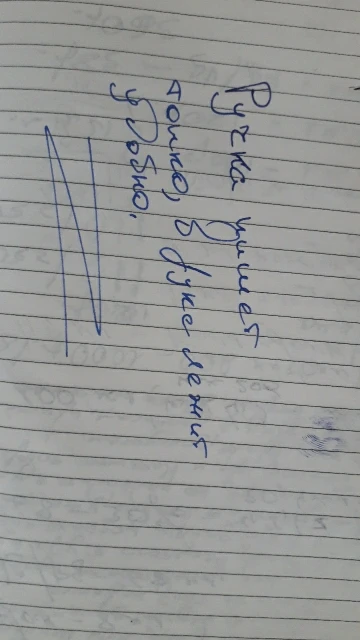 Ручка пишет
тонко, в руке лежит
удобно.